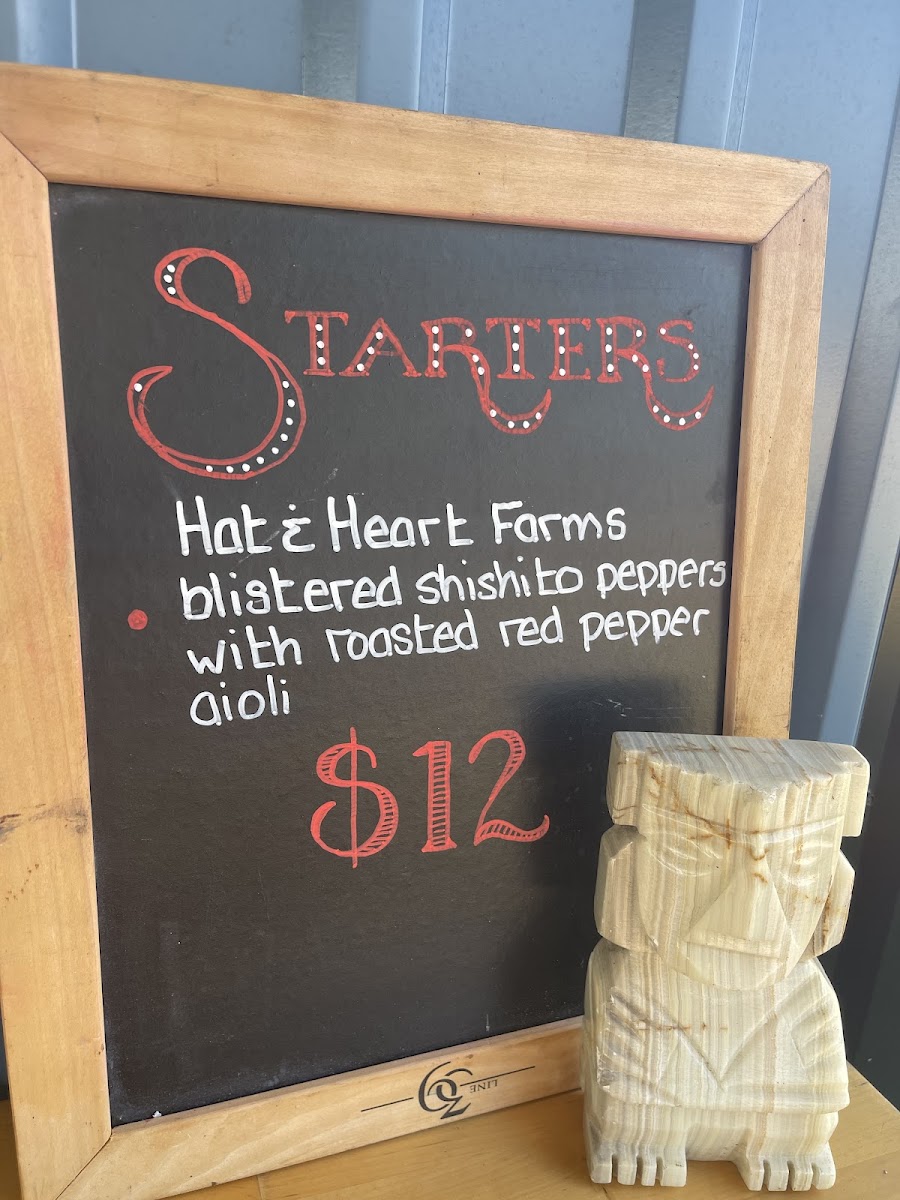 STARTERS
Hat & Heart Farms
blistered shishito peppers
with roasted red pepper
aioli
$12
LINE